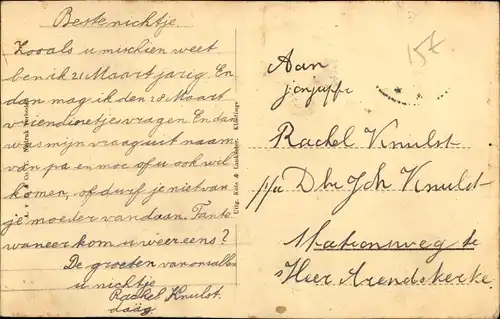 Beste nichtje.
Zooals u mischien weet
ben ik 21 Maart jarig. En
dan mag ik den 28 Maart
vriendinetjes vragen. En dan
was mijn vraag uit naam
van pa en moe of u ook wil
komen, of durf je niet van
je moeder vandaan. Tante
waneer kom u weer eens?
De groeten van ons allen
u nichtje
Rachel Knulst.
daag
15E
Aan
Rachel Knulst
p/a Dhr Joh Knulst
Stationsweg te
's Heer Arendskerke.